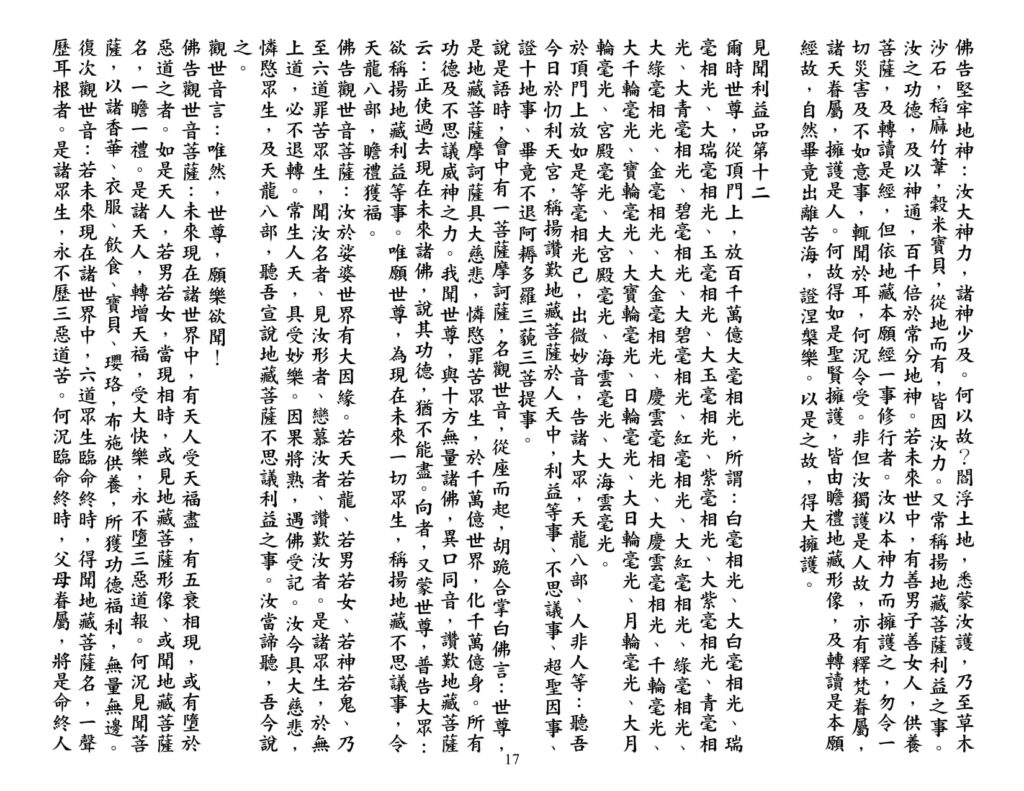 佛告堅牢地神：汝大神力，諸神少及。何以故？閻浮土地，悉蒙汝護，乃至草木
沙石，稻麻竹葦，穀米寶貝，從地而有，皆因汝力。又常稱揚地藏菩薩利益之事。
汝之功德，及以神通，百千倍於常分地神。若未來世中，有善男子善女人，供養
菩薩，及轉讀是經，但依地藏本願經一事修行者。汝以本神力而擁護之，勿令一
切災害及不如意事，輒聞於耳，何況令受。非但汝獨護是人故，亦有釋梵眷屬，
諸天眷屬，擁護是人。何故得如是聖賢擁護，皆由瞻禮地藏形像，及轉讀是本願
經故，自然畢竟出離苦海，證涅槃樂。以是之故，得大擁護。
見聞利益品第十二
爾時世尊，從頂門上，放百千萬億大毫相光，所謂：白毫相光、大白毫相光、瑞
毫相光、大瑞毫相光、玉毫相光、大玉毫相光、紫毫相光、大紫毫相光、青毫相
光、大青毫相光、碧毫相光、大碧毫相光、紅毫相光、大紅毫相光、綠毫相光、
大綠毫相光、金毫相光、大金毫相光、慶雲毫相光、大慶雲毫相光、千輪毫光、
大千輪毫光、寶輪毫光、大寶輪毫光、日輪毫光、大日輪毫光、月輪毫光、大月
輪毫光、宮殿毫光、大宮殿毫光、海雲毫光、大海雲毫光。
於頂門上放如是等毫相光已，出微妙音，告諸大眾，天龍八部、人非人等：聽吾
今日於忉利天宮，稱揚讚歎地藏菩薩於人天中，利益等事、不思議事、超聖因事、
證十地事、畢竟不退阿耨多羅三藐三菩提事。
說是語時，會中有一菩薩摩訶薩，名觀世音，從座而起，胡跪合掌白佛言：世尊，
是地藏菩薩摩訶薩具大慈悲，憐愍罪苦眾生，於千萬億世界，化千萬億身。所有
功德及不思議威神之力。我聞世尊，與十方無量諸佛，異口同音，讚歎地藏菩薩
云：正使過去現在未來諸佛，說其功德，猶不能盡。向者，又蒙世尊，普告大眾：
欲稱揚地藏利益等事。唯願世尊，為現在未來一切眾生，稱揚地藏不思議事，令
天龍八部，瞻禮獲福。
佛告觀世音菩薩：汝於娑婆世界有大因緣。若天若龍、若男若女、若神若鬼、乃
至六道罪苦眾生，聞汝名者、見汝形者、戀慕汝者、讚歎汝者。是諸眾生，於無
上道，必不退轉。常生人天，具受妙樂。因果將熟，遇佛受記。汝今具大慈悲，
憐愍眾生，及天龍八部，聽吾宣說地藏菩薩不思議利益之事。汝當諦聽，吾今說
之。
觀世音言：唯然，世尊，願樂欲聞！
佛告觀世音菩薩：未來現在諸世界中，有天人受天福盡，有五衰相現，或有墮於
惡道之者。如是天人，若男若女，當現相時，或見地藏菩薩形像、或聞地藏菩薩
名，一瞻一禮。是諸天人，轉增天福，受大快樂，永不墮三惡道報。何況見聞菩
薩，以諸香華、衣服、飲食、寶貝、瓔珞，布施供養，所獲功德福利，無量無邊。
復次觀世音：若未來現在諸世界中，六道眾生臨命終時，得聞地藏菩薩名，一聲
歷耳根者。是諸眾生，永不歷三惡道苦。何況臨命終時，父母眷屬，將是命終人
17